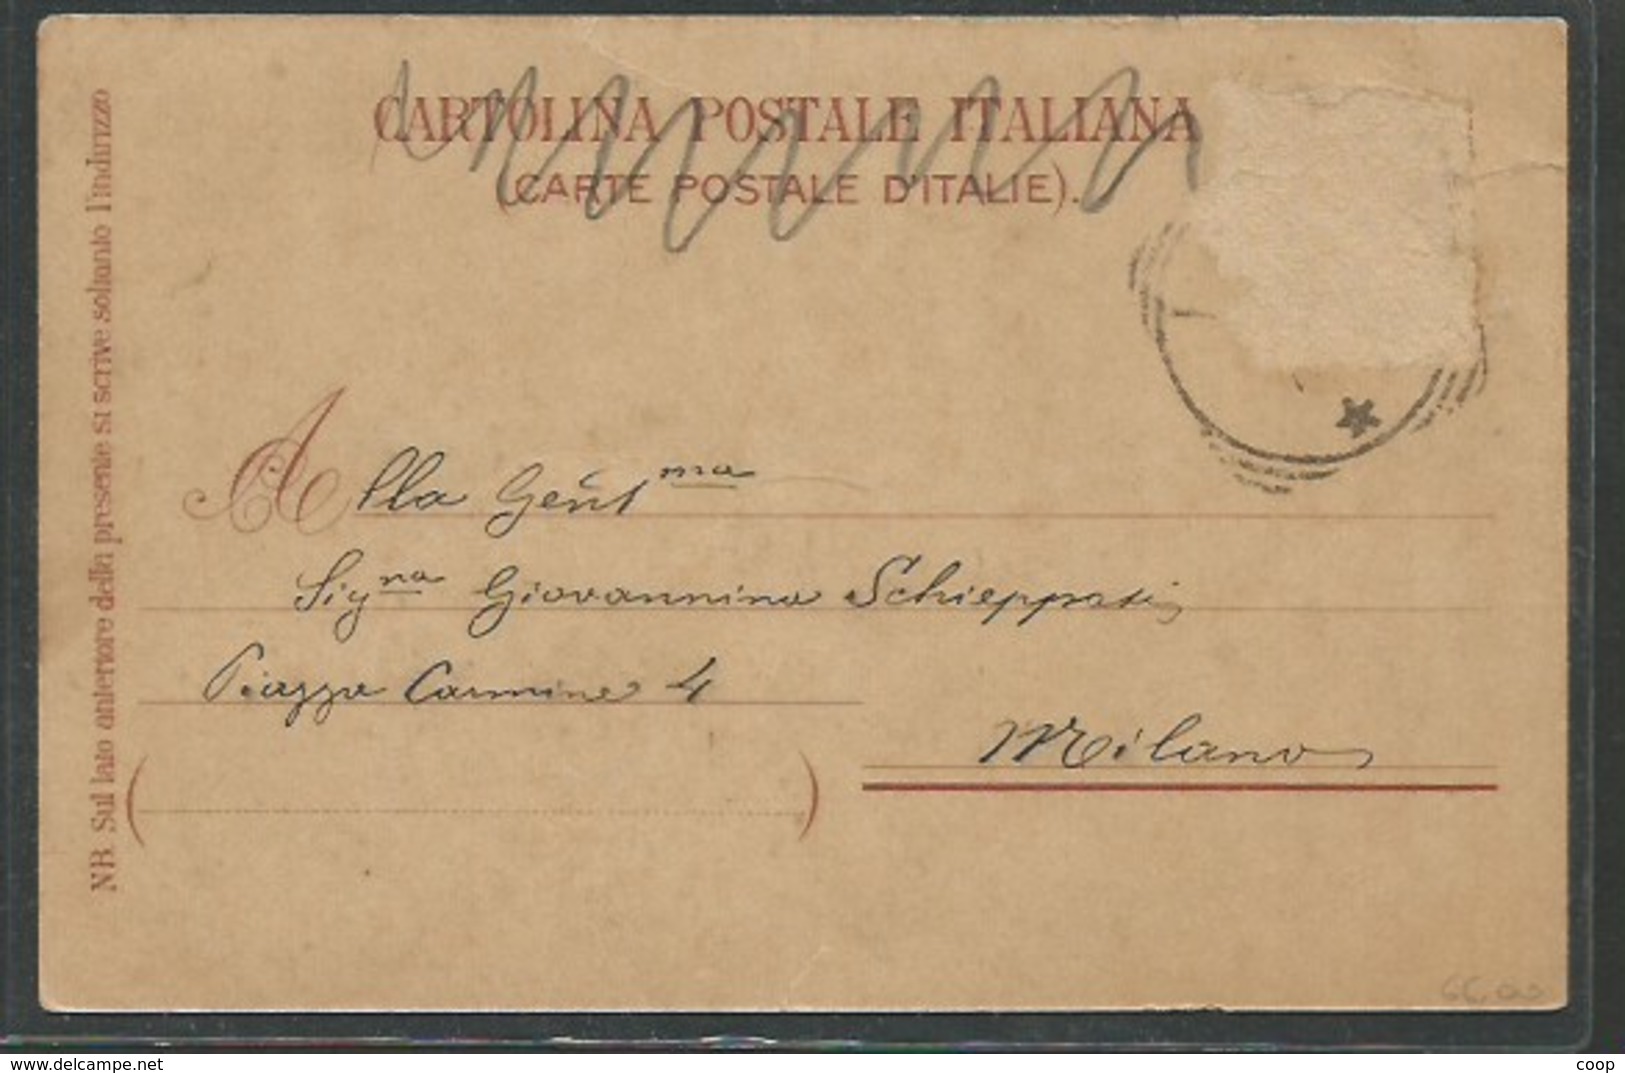 CARTOLINA POSTALE ITALIANA
(CARTE POSTALE D'ITALIE).
NB. Sul lato anteriore della presente si scrive soltanto l'indirizzo
Alla Gent ma
Sig na Giovannina Schieppati
Piazza Carmine 4
Milano
66,00
delcampe.net
coop